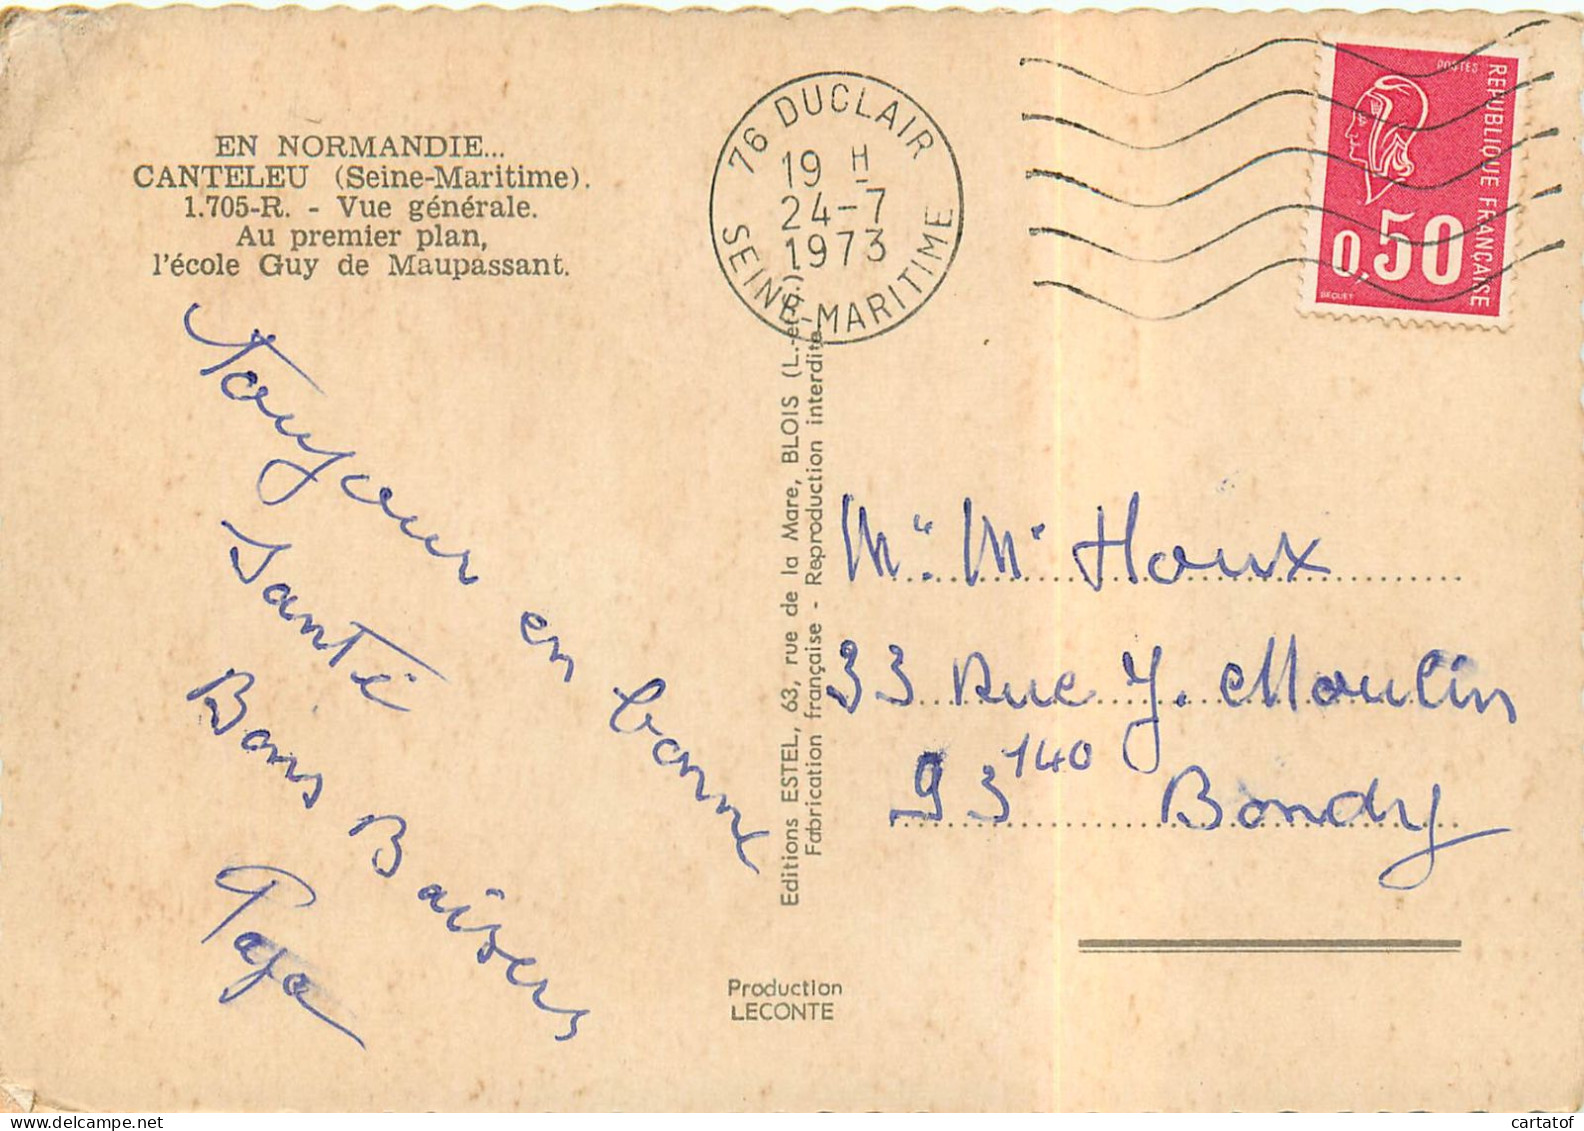 EN NORMANDIE...
CANTELEU (Seine-Maritime).
1.705-R. - Vue générale.
Au premier plan,
l'école Guy de Maupassant.
76 DUCLAIR
19 H
24-7
1973
SEINE-MARITIME
POSTES
REPUBLIQUE FRANÇAISE
0,50
BEQUET
Toujour en bonne
Santé
Bons Baisers
Papa
Editions ESTEL, 63, rue de la Mare, BLOIS (L.-et-C.).
Fabrication française - Reproduction interdite
Mr Houx
33 Rue J. Moulin
93140 Bondy
Production
LECONTE
cartatof